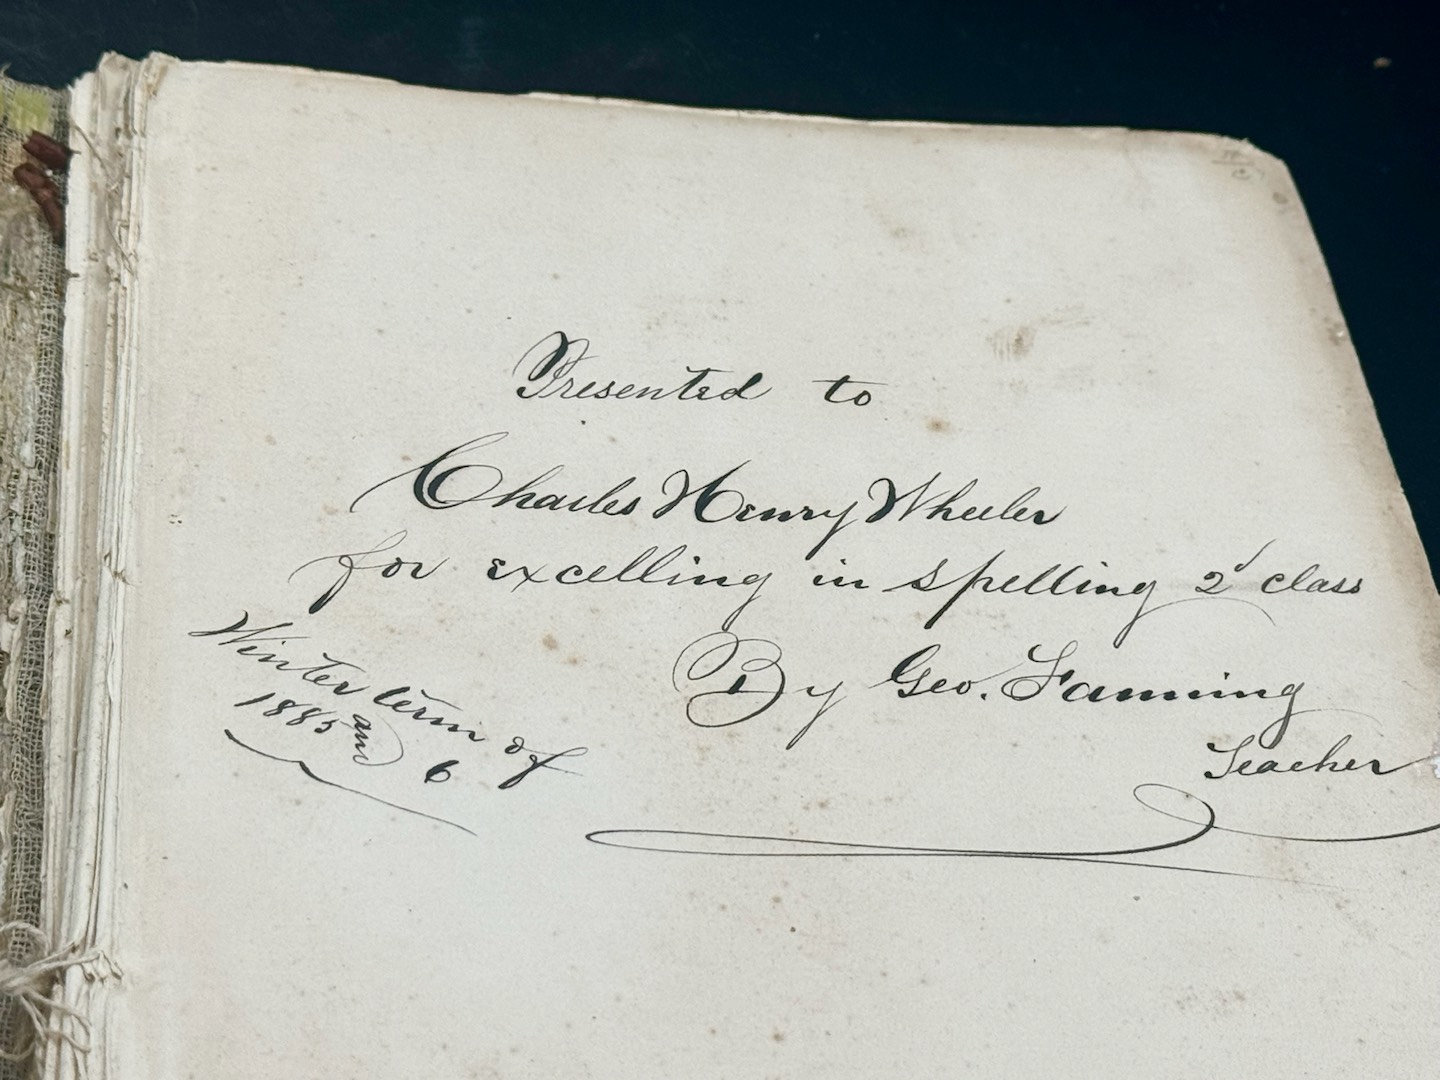 Presented to
Charles Henry Wheeler
for excelling in spelling 2d class
By Geo. Fanning
Teacher
Winter term of
1885 and 6